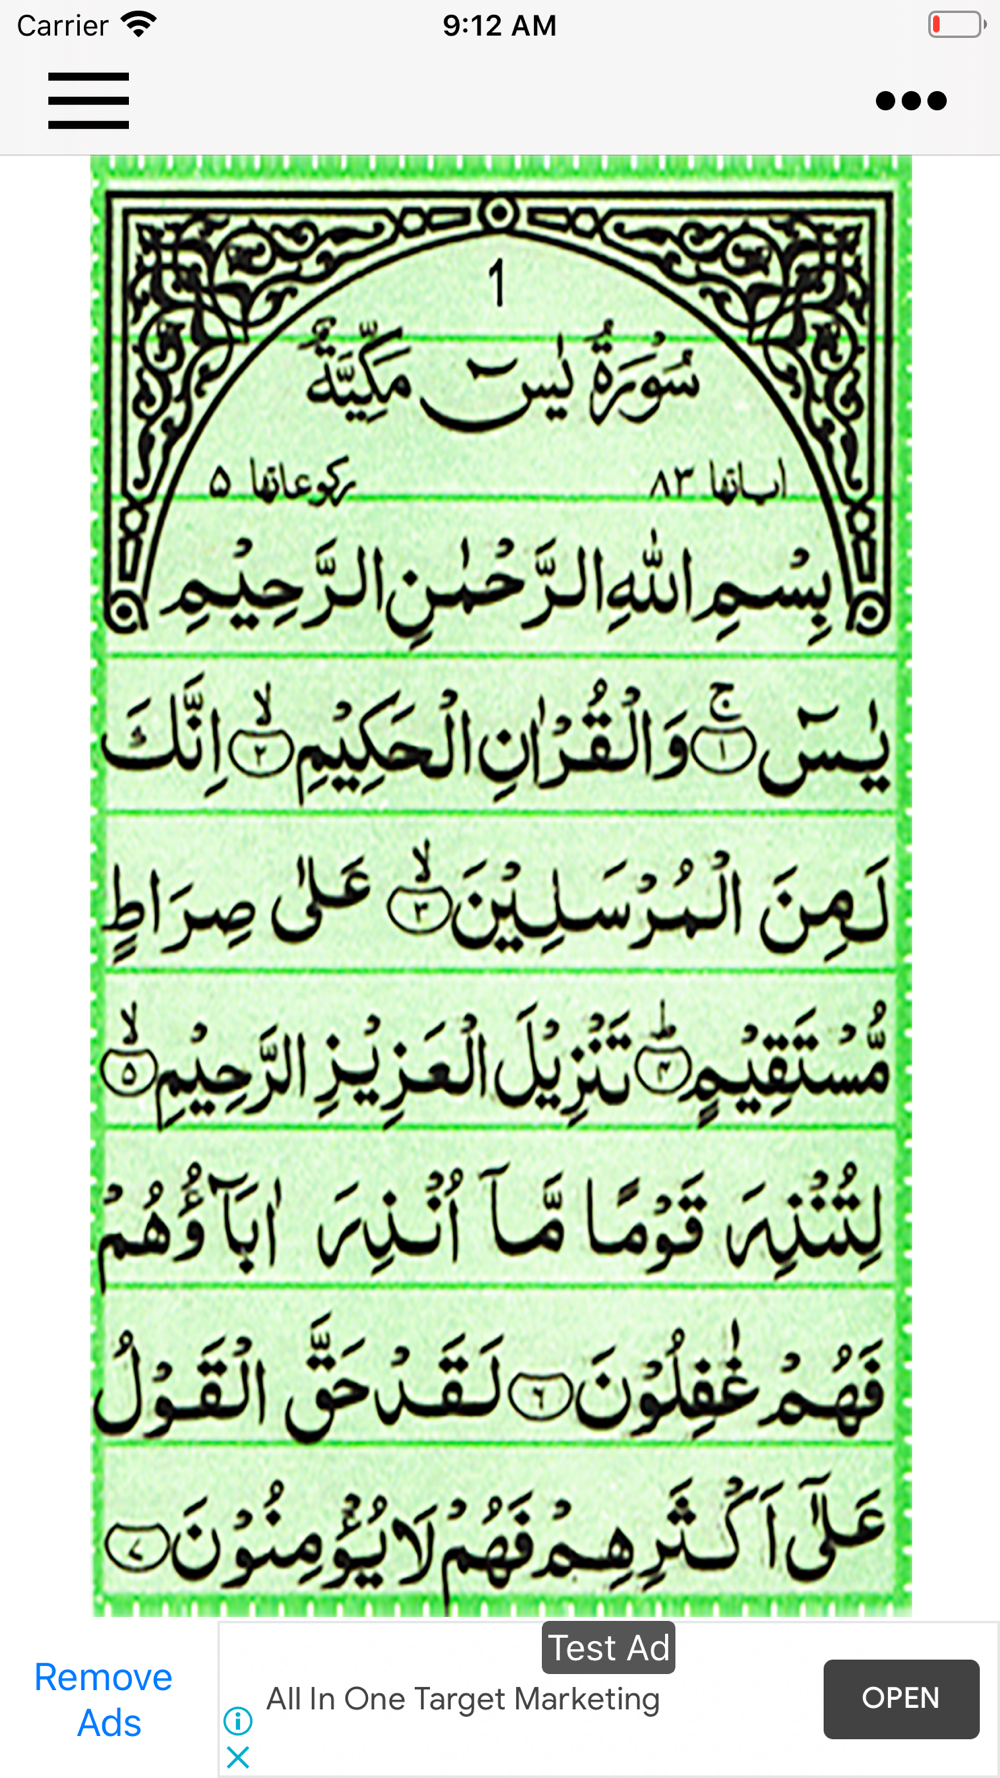 Carrier 9:12 AM
1
سُوۡرَةُ يٰسٓ مَكِّيَّةٌ
اٰیاتها ٨٣ رکوعاتها ۵
بِسۡمِ اللّٰهِ الرَّحۡمٰنِ الرَّحِيۡمِ
يٰسٓ ۚ‏ ﴿۱﴾ وَالۡقُرۡاٰنِ الۡحَكِيۡمِ ۙ‏ ﴿۲﴾ اِنَّكَ
لَمِنَ الۡمُرۡسَلِيۡنَ ۙ‏ ﴿۳﴾ عَلٰى صِرَاطٍ
مُّسۡتَقِيۡمٍ ؕ‏ ﴿۴﴾ تَنۡزِيۡلَ الۡعَزِيۡزِ الرَّحِيۡمِ ۙ‏ ﴿۵﴾
لِتُنۡذِرَ قَوۡمًا مَّاۤ اُنۡذِرَ اٰبَآؤُهُمۡ
فَهُمۡ غٰفِلُوۡنَ ﴿۶﴾ لَقَدۡ حَقَّ الۡقَوۡلُ
عَلٰٓى اَكۡثَرِهِمۡ فَهُمۡ لَا يُؤۡمِنُوۡنَ ﴿۷﴾
Test Ad
Remove Ads
All In One Target Marketing
OPEN